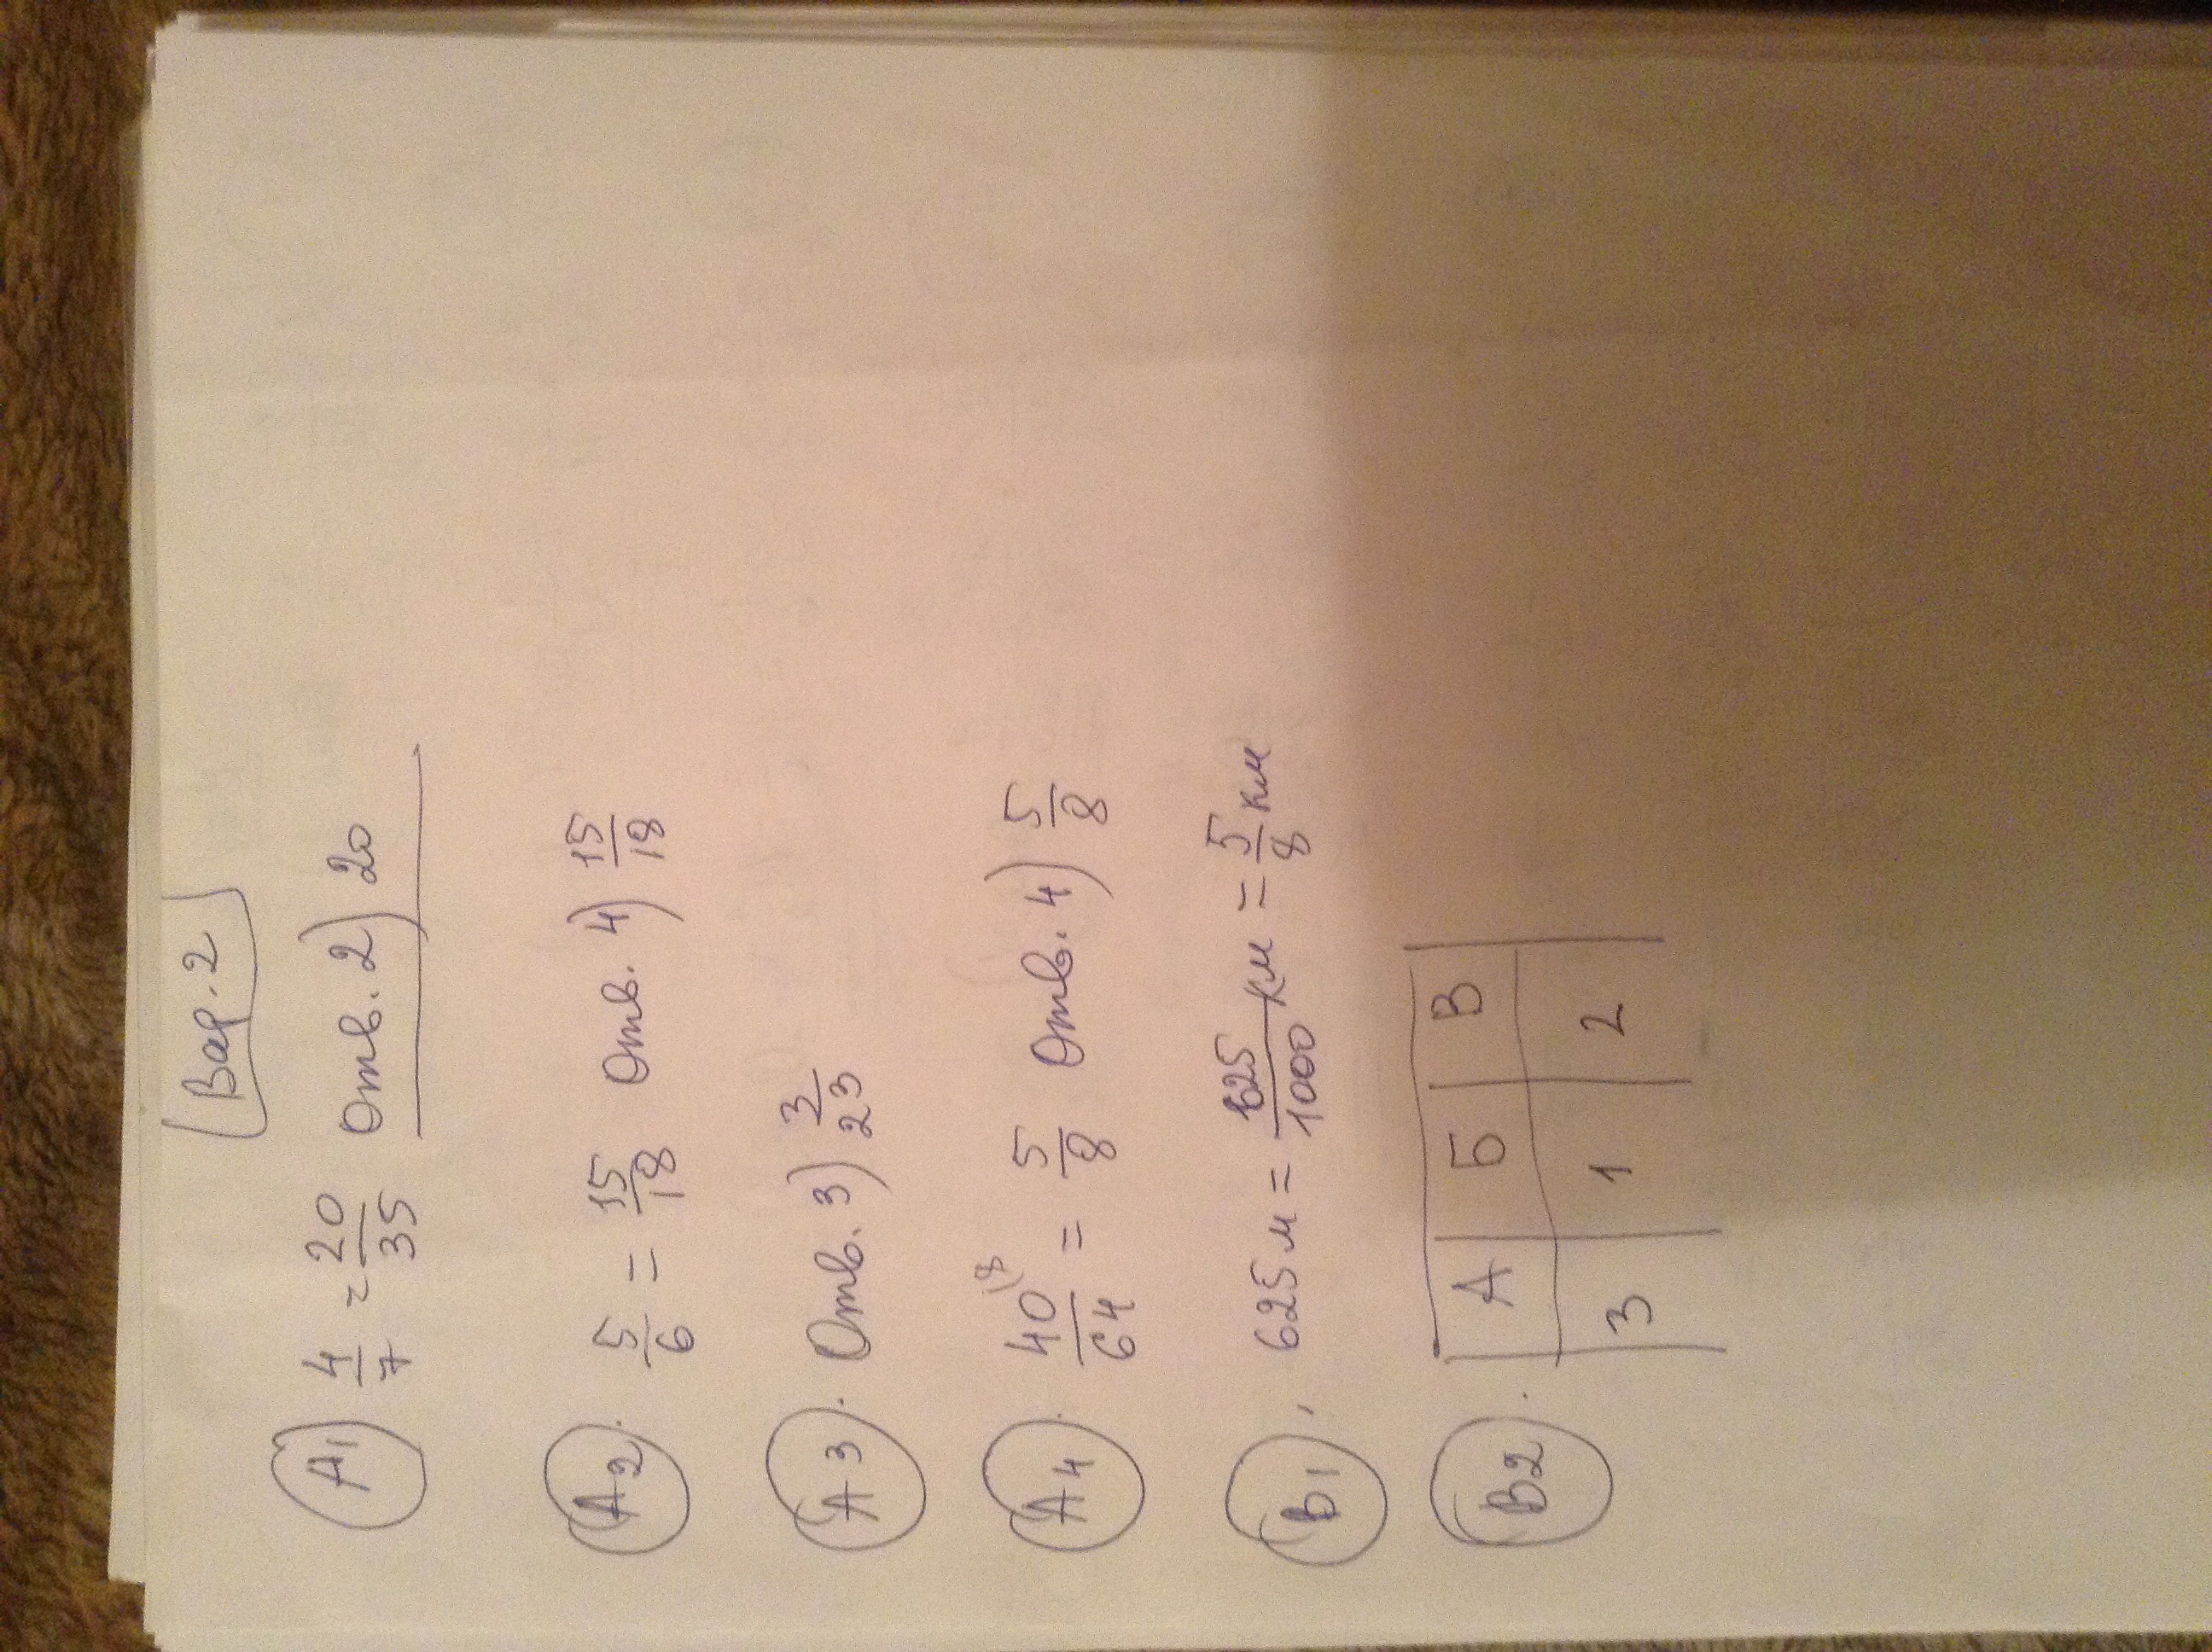 Вар. 2
А1 4/7 = 20/35 Отв. 2) 20
А2. 5/6 = 15/18 Отв. 4) 15/18
А3. Отв. 3) 3/23
А4. 40/64 (8 = 5/8 Отв. 4) 5/8
В1, 625 м = 625/1000 км = 5/8 км
В2. А Б В
3 1 2